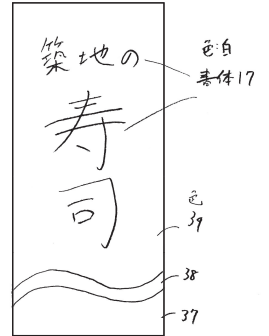 築地の
寿司
色:白
書体17
色
39
38
37